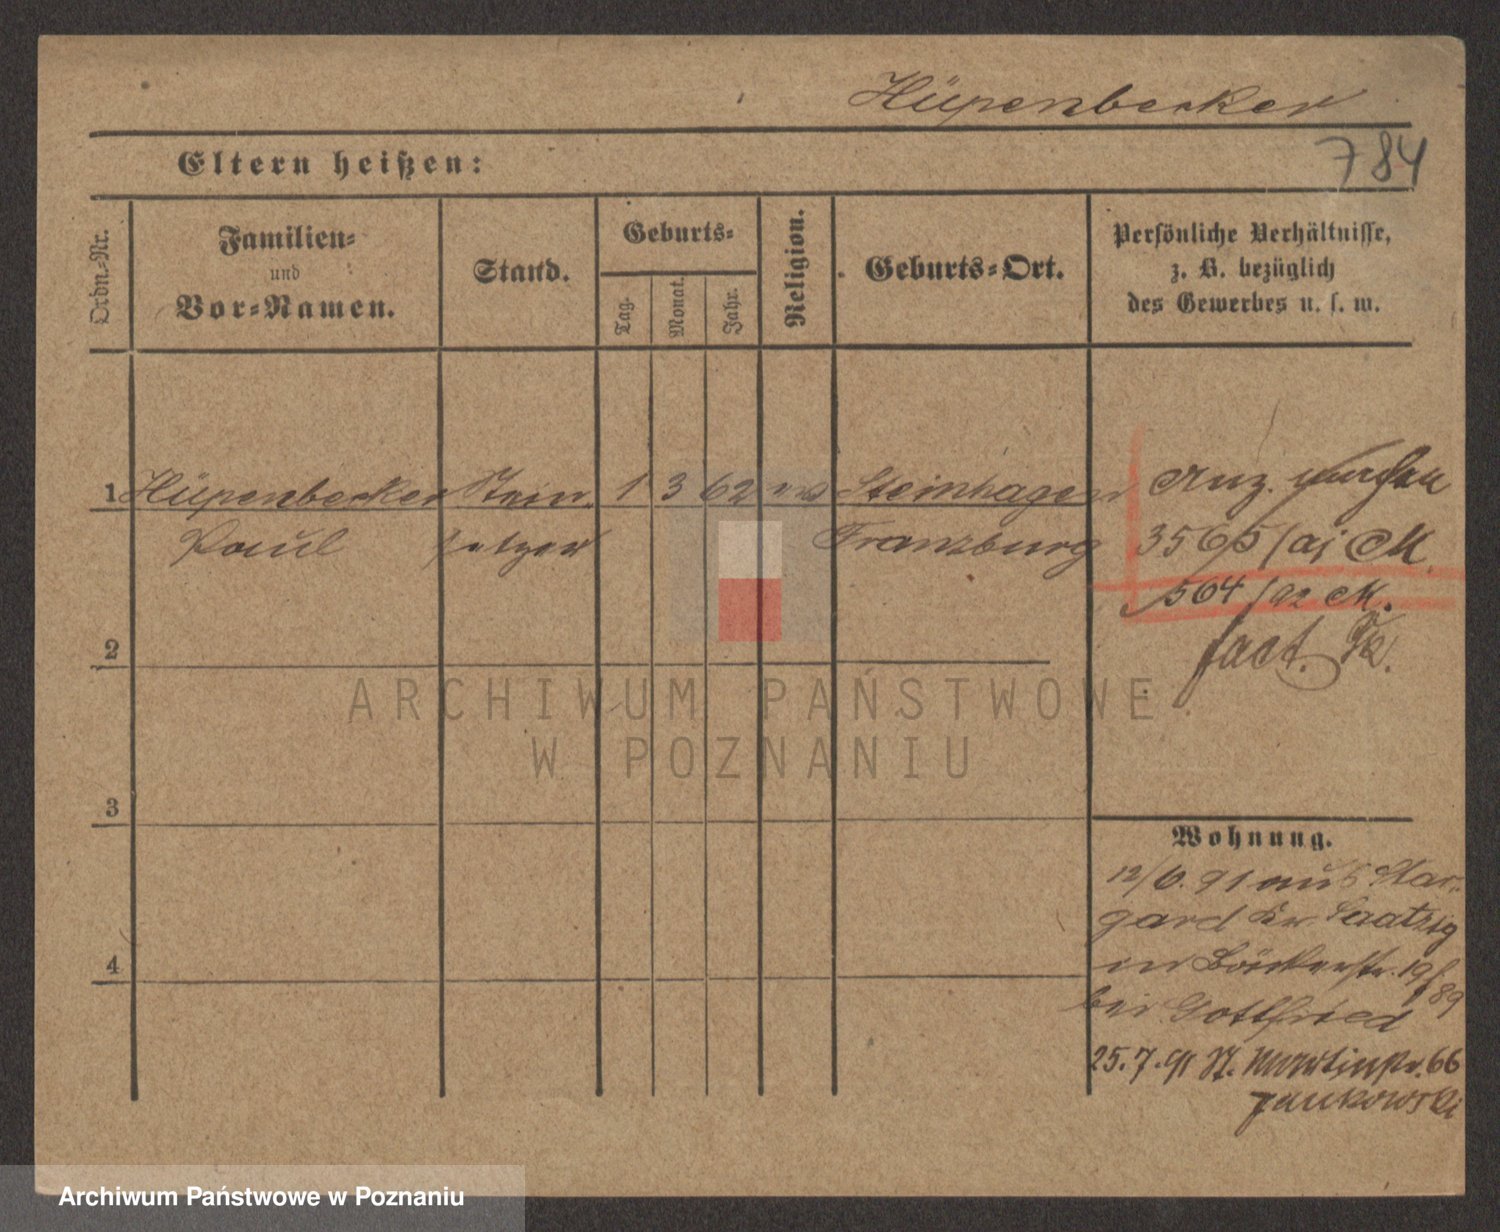 Hüpenbecker
784
Eltern heißen:
Ordn.-Nr.
Familien-
und
Vor-Namen.
Stand.
Geburts-
Tag.
Monat.
Jahr.
Religion.
Geburts-Ort.
Persönliche Verhältnisse,
z. B. bezüglich
des Gewerbes u. s. w.
1 Hüpenbecker Stein 1 3 62 Steinhagen
Paul setzer Franzburg
Anz.
3565/91 M.
564/92 M.
fact.
2
3
4
ARCHIWUM PAŃSTWOWE
W POZNANIU
Wohnung.
12/6. 91 aus Star-
gard Kr. Saatzig
in Bäckerstr. 19
89
bei Gottfried
25.7.91 St. Martinstr. 66
Jankowski
Archiwum Państwowe w Poznaniu